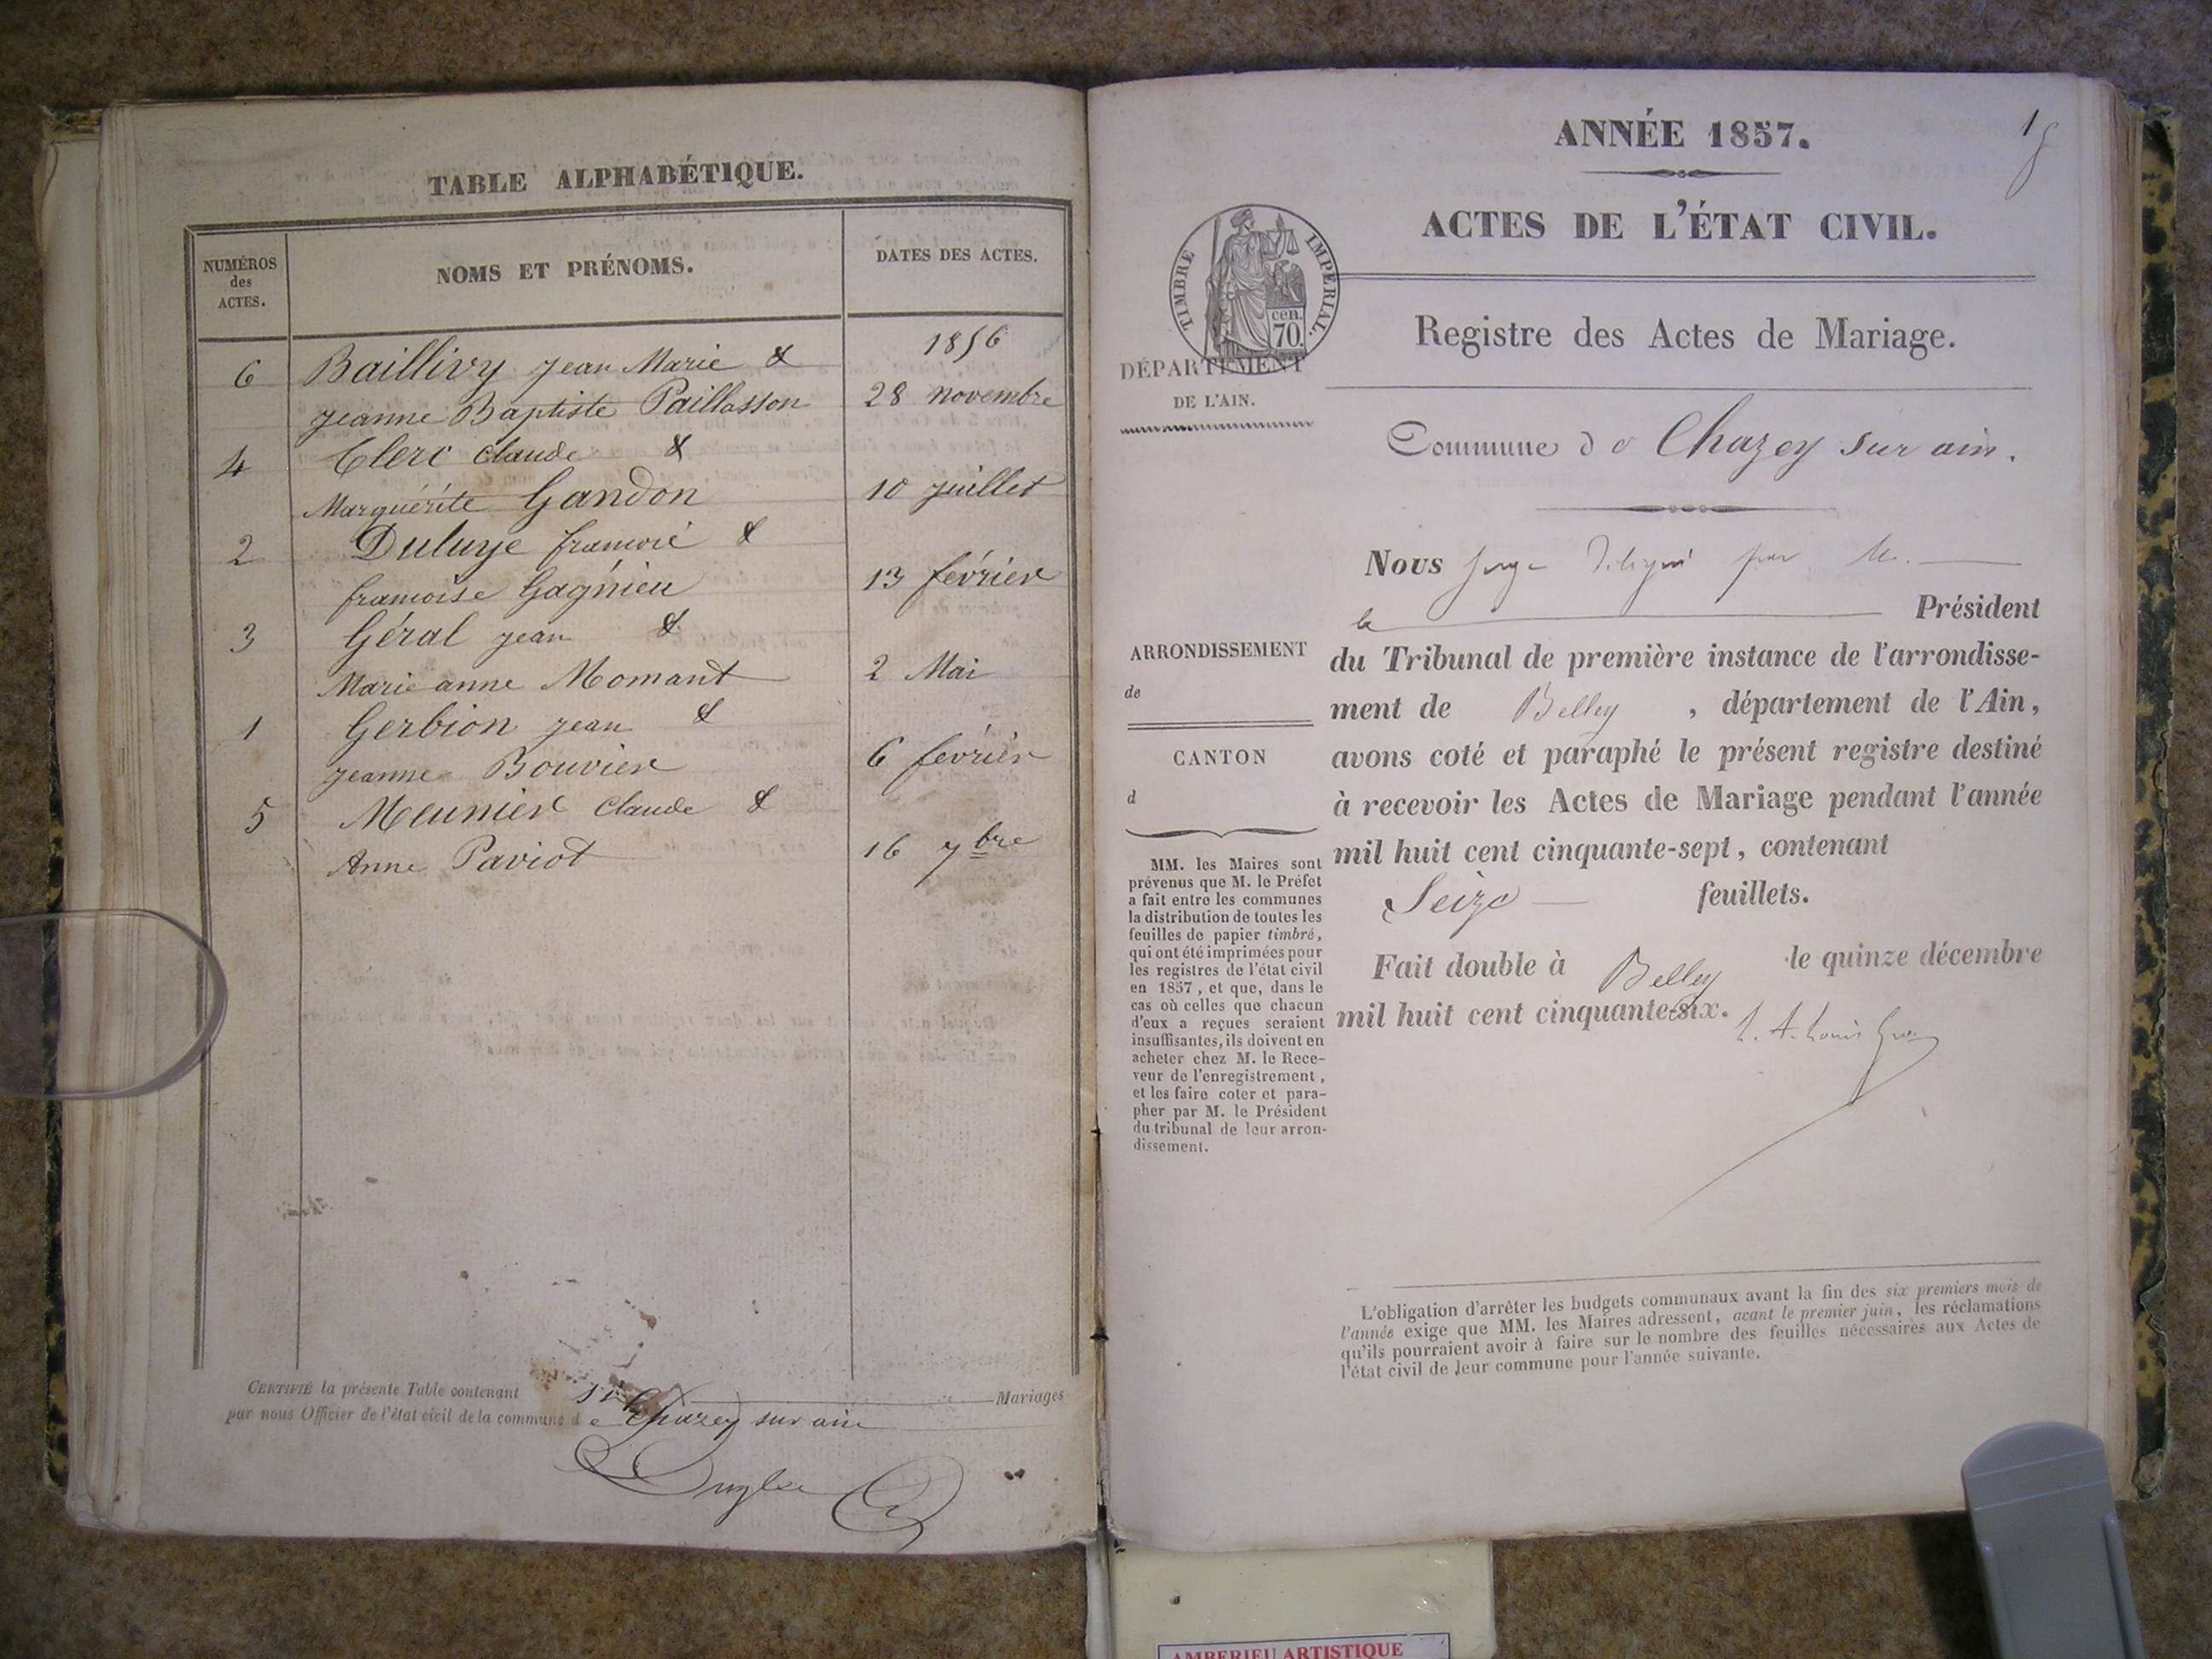 TABLE ALPHABÉTIQUE.
NUMÉROS
des
ACTES.
NOMS ET PRÉNOMS.
DATES DES ACTES.
1856
6 Baillivy Jean Marie &
Jeanne Baptiste Paillasson 28 novembre
4 Clerc Claude &
Marguérite Gandon 10 juillet
2 &
Gagnieu 13 février
3 Géral jean &
Marie anne Momant 2 Mai
1 Gerbion jean &
jeanne Bouvier 6 février
5 Meunier Claude &
Anne Paviot 16 7bre
CERTIFIÉ la présente Table contenant six Mariages
par nous Officier de l'état civil de la commune de Chazey sur ain
1
ANNÉE 1857.
ACTES DE L'ÉTAT CIVIL.
TIMBRE IMPÉRIAL.
cen.
70.
Registre des Actes de Mariage.
DÉPARTEMENT
DE L'AIN.
Commune de Chazey sur ain.
Nous juge par M.
le Président
ARRONDISSEMENT
de
CANTON
d
du Tribunal de première instance de l'arrondisse-
ment de Belley, département de l'Ain,
avons coté et paraphé le présent registre destiné
à recevoir les Actes de Mariage pendant l'année
mil huit cent cinquante-sept, contenant
Seize feuillets.
Fait double à Belley le quinze décembre
mil huit cent cinquante-six.
MM. les Maires sont
prévenus que M. le Préfet
a fait entre les communes
la distribution de toutes les
feuilles de papier timbré,
qui ont été imprimées pour
les registres de l'état civil
en 1857, et que, dans le
cas où celles que chacun
d'eux a reçues seraient
insuffisantes, ils doivent en
acheter chez M. le Rece-
veur de l'enregistrement,
et les faire coter et para-
pher par M. le Président
du tribunal de leur arron-
dissement.
L'obligation d'arrêter les budgets communaux avant la fin des six premiers mois de
l'année exige que MM. les Maires adressent, avant le premier juin, les réclamations
qu'ils pourraient avoir à faire sur le nombre des feuilles nécessaires aux Actes de
l'état civil de leur commune pour l'année suivante.
AMBERIEU ARTISTIQUE